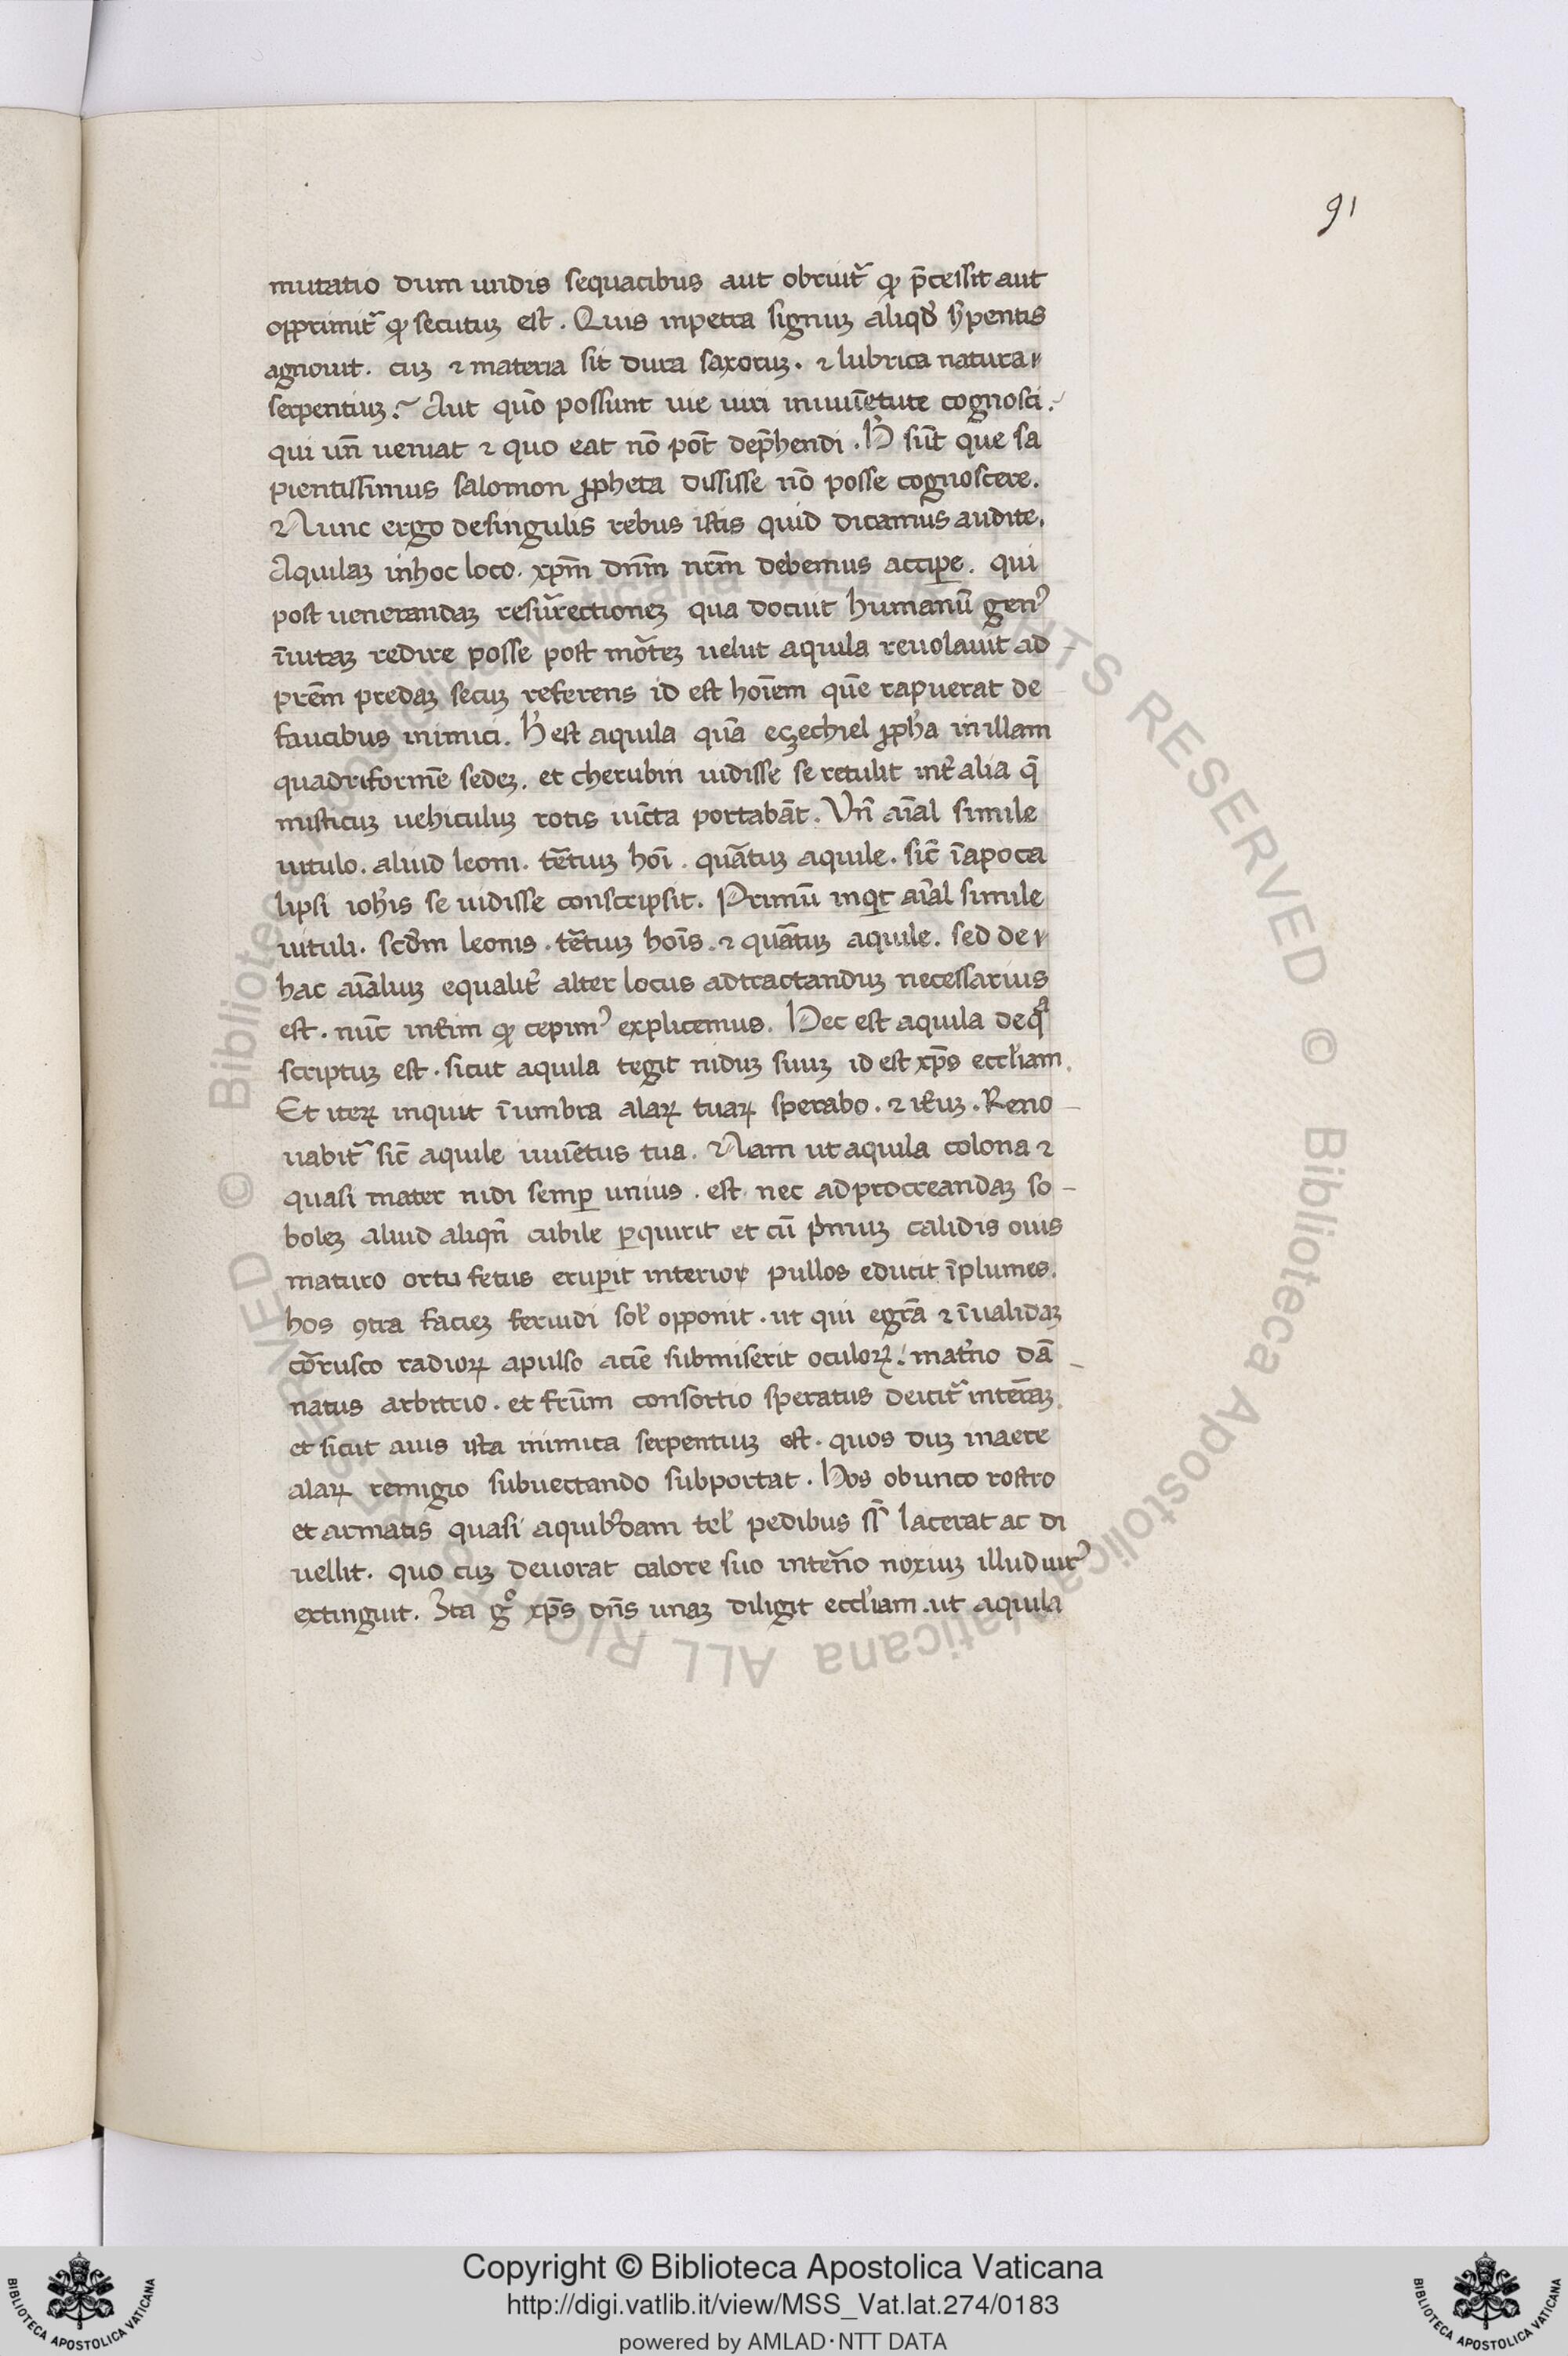 91
mutatio dum undis sequacibus aut obruit᷒ ꝙ p̄cessit aut
opprimit᷒ ꝙ secutuꝫ est. Quis inpetra signuꝫ aliqd̓ s̓pentis
agnouit. cuꝫ ⁊ materia sit dura saxoruꝫ. ⁊ lubrica natura
serpentiuꝫ. Aut quō possunt uie uiri iniuuētute cognosci.
qui un̄ ueniat ⁊ quo eat nō pōt dep̄hendi. H̓ sūt que sa
pientissimus salomon ꝓpheta dississe nō posse cognoscere.
Nunc ergo desingulis rebus istis quid dicamus audite.
Aquilaꝫ inhoc loco. xp̄m dn̄m nr̄m debemus accipe. qui
post uenerandaꝫ resur̄rectioneꝫ qua docuit humanū gen᾽
īuitaꝫ redire posse post mōteꝫ uelut aquila reuolauit ad
prēm predaꝫ secuꝫ referens id est hoīem quē rapuerat de
faucibus inimici. H̓ est aquila quā eçechiel ꝓph̓a in illam
quadriformē sedeꝫ. et cherubin uidisse se retulit int̓ alia q̄
misticuꝫ uehiculuꝫ rotis uīcta portabāt. Vn̄ aīal simile
uitulo. aliud leoni. tētiuꝫ hoī. quātuꝫ aquile. sic̄ īapoca
lipsi ioh̓is se uidisse conscripsit. Primū inqt aīal simile
uituli. scd̓m leonis. tētiuꝫ hoīs. ⁊ quātuꝫ aquile. sed de
hac aīaliuꝫ equalit̓ alter locus adtractanduꝫ necessarius
est. nūc int̓im ꝙ cepim᾽ explicemus. Hec est aquila deqᵃ
scriptuꝫ est. sicut aquila tegit niduꝫ suuꝫ id est xp̄s eccl̓iam.
Et iteꝝ inquit īumbra alaꝝ tuaꝝ sperabo. ⁊ it̓uꝫ. Reno
uabit᷒ sic̄ aquile iuuētus tua. Nam ut aquila colona ⁊
quasi mater nidi semꝑ unius. est nec adprocreandaꝫ so
boleꝫ aliud aliqn̄ cubile ꝑquirit et cū p̓muꝫ calidis ouis
maturo ortu fetus eruꝑit interior pullos educit īplumes.
hos ꝯtra facieꝫ feruidi sol̓ opponit. ut qui egrā ⁊ īualidaꝫ
cōrusco radioꝝ apulso aciē submiserit oculoꝝ. mat̓no dā
natus arbitrio. et fr̄um consortio speratus deicit᷒ inter̄aꝫ.
et sicut auis ista inimica serpentiuꝫ est. quos duꝫ inaere
alaꝝ remigio subuectando subportat. Hos obunco rostro
et armatis quasi aquibꝰdam tel̓ pedibus lacerat ac di
uellit. quo cuꝫ deuorat calore suo inter̄no noxiuꝫ illud uir᾽
extinguit. Ita gᵒ xp̄s dn̄s unaꝫ diligit eccl̓iam. ut aquila
© Biblioteca Apostolica Vaticana ALL RIGHTS RESERVED
Copyright © Biblioteca Apostolica Vaticana
http://digi.vatlib.it/view/MSS_Vat.lat.274/0183
powered by AMLAD·NTT DATA
BIBLIOTECA APOSTOLICA VATICANA
BIBLIOTECA APOSTOLICA VATICANA